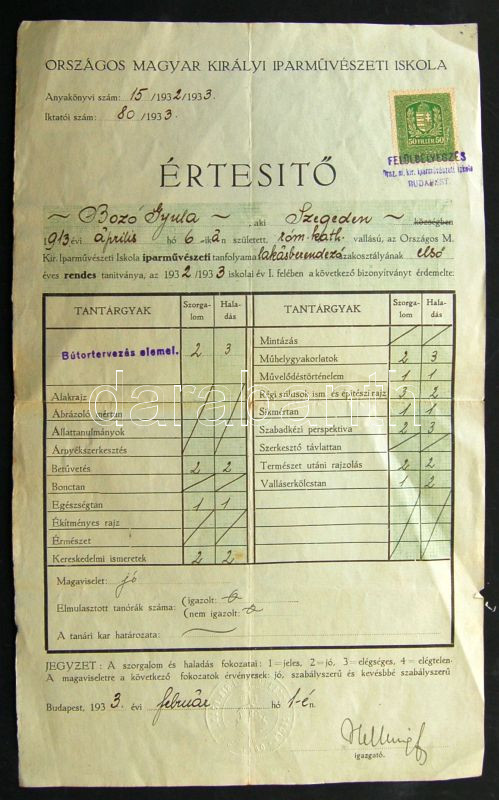 ORSZÁGOS MAGYAR KIRÁLYI IPARMŰVÉSZETI ISKOLA
Anyakönyvi szám: 15 /1932/1933.
Iktatói szám: 80 /1933.
50 FILLÉR 50
FELÜLBÉLYEGZÉS
Orsz. m. kir. iparművészeti iskola
BUDAPEST.
ÉRTESITŐ
~ Bozó Gyula ~, aki Szegeden ~ községben
1913 évi április hó 6-ikán született, róm. kath. vallású, az Országos M.
Kir. Iparművészeti Iskola iparművészeti tanfolyama lakásberendező szakosztályának első
éves rendes tanitványa, az 1932/1933 iskolai év I. felében a következő bizonyitványt érdemelte:
TANTÁRGYAK Szorgalom Haladás TANTÁRGYAK Szorgalom Haladás
Bútortervezés elemei. 2 3
Mintázás
Műhelygyakorlatok 2 3
Művelődéstörténelem 1 1
Alakrajz
Régi stílusok ism. és építészi rajz 3 2
Ábrázoló mértan
Síkmértan 1 1
Állattanulmányok
Szabadkézi perspektiva 2 3
Árnyékszerkesztés
Szerkesztő távlattan
Betűvetés 2 2
Természet utáni rajzolás 2 2
Bonctan
Valláserkölcstan 1 2
Egészségtan 1 1
Ékítményes rajz
Érmészet
Kereskedelmi ismeretek 2 2
darabanth
Magaviselet: jó
Elmulasztott tanórák száma: (igazolt: 0
(nem igazolt: 0
A tanári kar határozata:
JEGYZET: A szorgalom és haladás fokozatai: 1=jeles, 2=jó, 3=elégséges, 4=elégtelen.
A magaviseletre a következő fokozatok érvényesek: jó, szabályszerű és kevésbbé szabályszerű
Budapest, 1933. évi február hó 1-én.
igazgató.